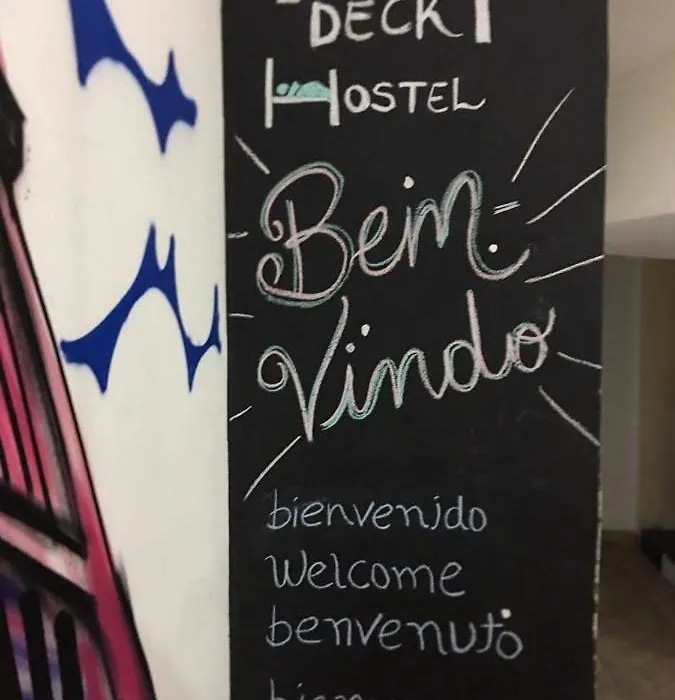 DECK
HOSTEL
Bem-
Vindo
bienvenido
Welcome
benvenuto